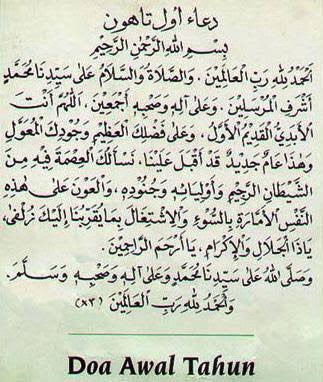 دعاء اول تاهون
بِسْمِ اللهِ الرَّحْمٰنِ الرَّحِيْمِ
اَلْحَمْدُ لِلهِ رَبِّ الْعَالَمِيْنَ . وَالصَّلَاةُ وَالسَّلَامُ عَلَى سَيِّدِنَا مُحَمَّدٍ
أَشْرَفِ الْمُرْسَلِيْنَ . وَعَلَى آلِهِ وَصَحْبِهِ أَجْمَعِيْنَ . اَللّٰهُمَّ أَنْتَ
الْأَبَدِيُّ الْقَدِيْمُ الْأَوَّلُ . وَعَلَى فَضْلِكَ الْعَظِيْمِ وَجُوْدِكَ الْمُعَوَّلُ
وَهٰذَا عَامٌ جَدِيْدٌ قَدْ أَقْبَلَ عَلَيْنَا . نَسْأَلُكَ الْعِصْمَةَ فِيْهِ مِنَ
الشَّيْطَانِ الرَّجِيْمِ وَأَوْلِيَائِهِ وَجُنُوْدِهِ . وَالْعَوْنَ عَلَى هٰذِهِ
النَّفْسِ الْأَمَّارَةِ بِالسُّوْءِ وَالْاِشْتِغَالَ بِمَا يُقَرِّبُنَا إِلَيْكَ زُلْفَى ،
يَاذَا الْجَلَالِ وَالْإِكْرَامِ . يَا أَرْحَمَ الرَّاحِمِيْنَ .
وَصَلَّى اللهُ عَلَى سَيِّدِنَا مُحَمَّدٍ وَعَلَى آلِهِ وَصَحْبِهِ وَسَلَّمَ .
وَالْحَمْدُ لِلهِ رَبِّ الْعَالَمِيْنَ (٣×)
Doa Awal Tahun